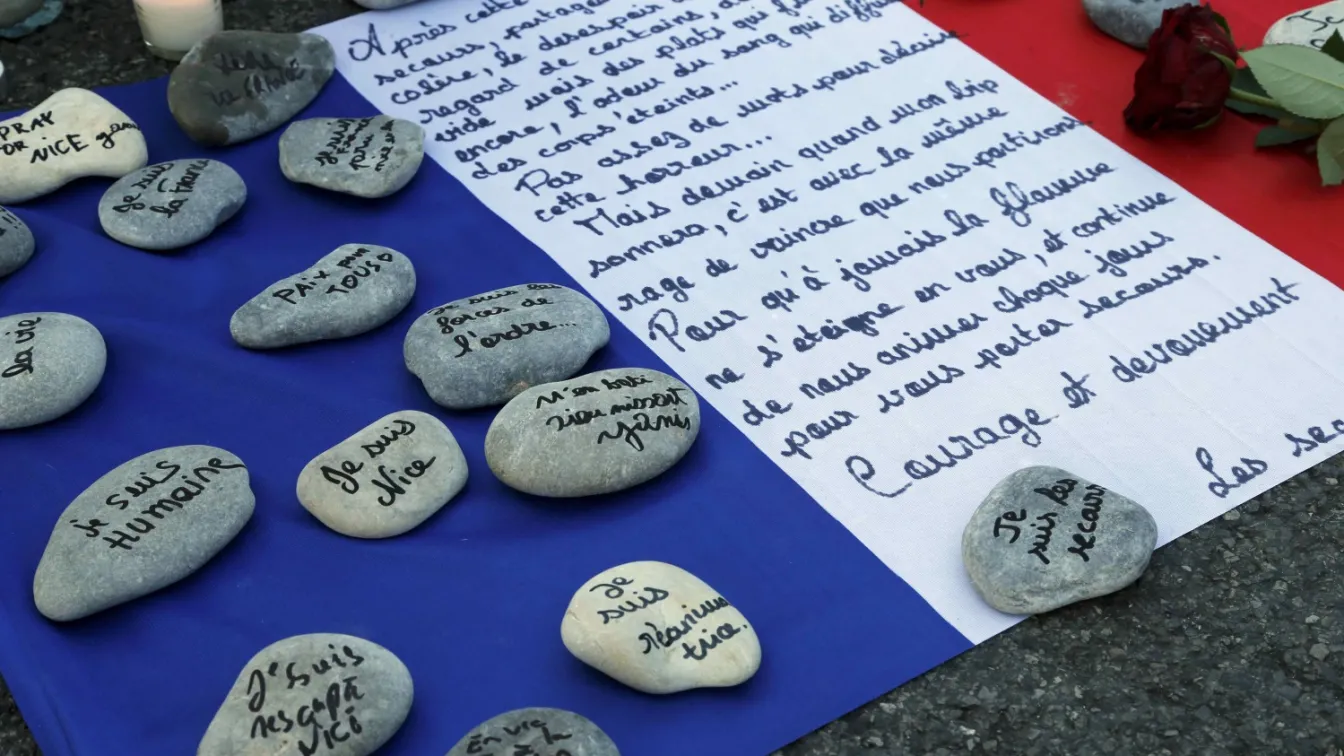 Après cette
secours, partage
colère, le desespoir
regard de certains,
vide mais des plats qui
encore, l'odeur du sang qui diffu
des corps éteints...
Pas assez de mots pour décrire
cette horreur...
Mais demain quand mon bip
sonnera, c'est avec la même
rage de vaincre que nous partirons
Pour qu'à jamais la flamme
ne s'eteigne en vous, et continue
de nous animer chaque jours
pour vous porter secours.
Courage et devouement
Les sec
PRAY
OR NICE
Je suis
la France
Je suis
PAIX pour
TOUS
Je suis les
forces de
l'ordre...
la vie
Je suis
Nice
Je suis
Humaine
Je
suis les
secours
Je
suis
réanima
trice.
Je suis
rescapé
NICE
En vie